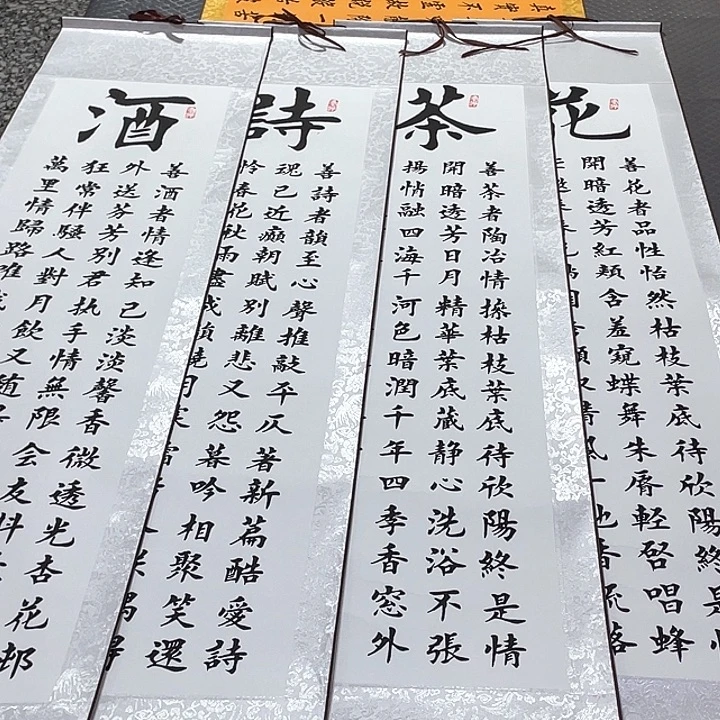 花
善花者品性怡然枯枝葉底待欣陽終是情
開暗透芳紅頰含羞窺蝶舞朱唇輕啓唱蜂
香流落
茶
善茶者陶冶情操枯枝葉底待欣陽終是情
開暗透芳日月精華葉底藏静心洗浴不張
揚悄融四海千河色暗潤千年四季香窓外
詩
善詩者韻至心聲推敲平仄著新篇酷愛詩
魂已近癲朝賦别離悲又怨暮吟相聚笑還
怜春花秋雨盡
酒
善酒者情逢知己淡淡馨香微透光杏花邨
外送芬芳别君执手情無限会友
狂常伴騷人對月飲又随
萬里情歸路唯